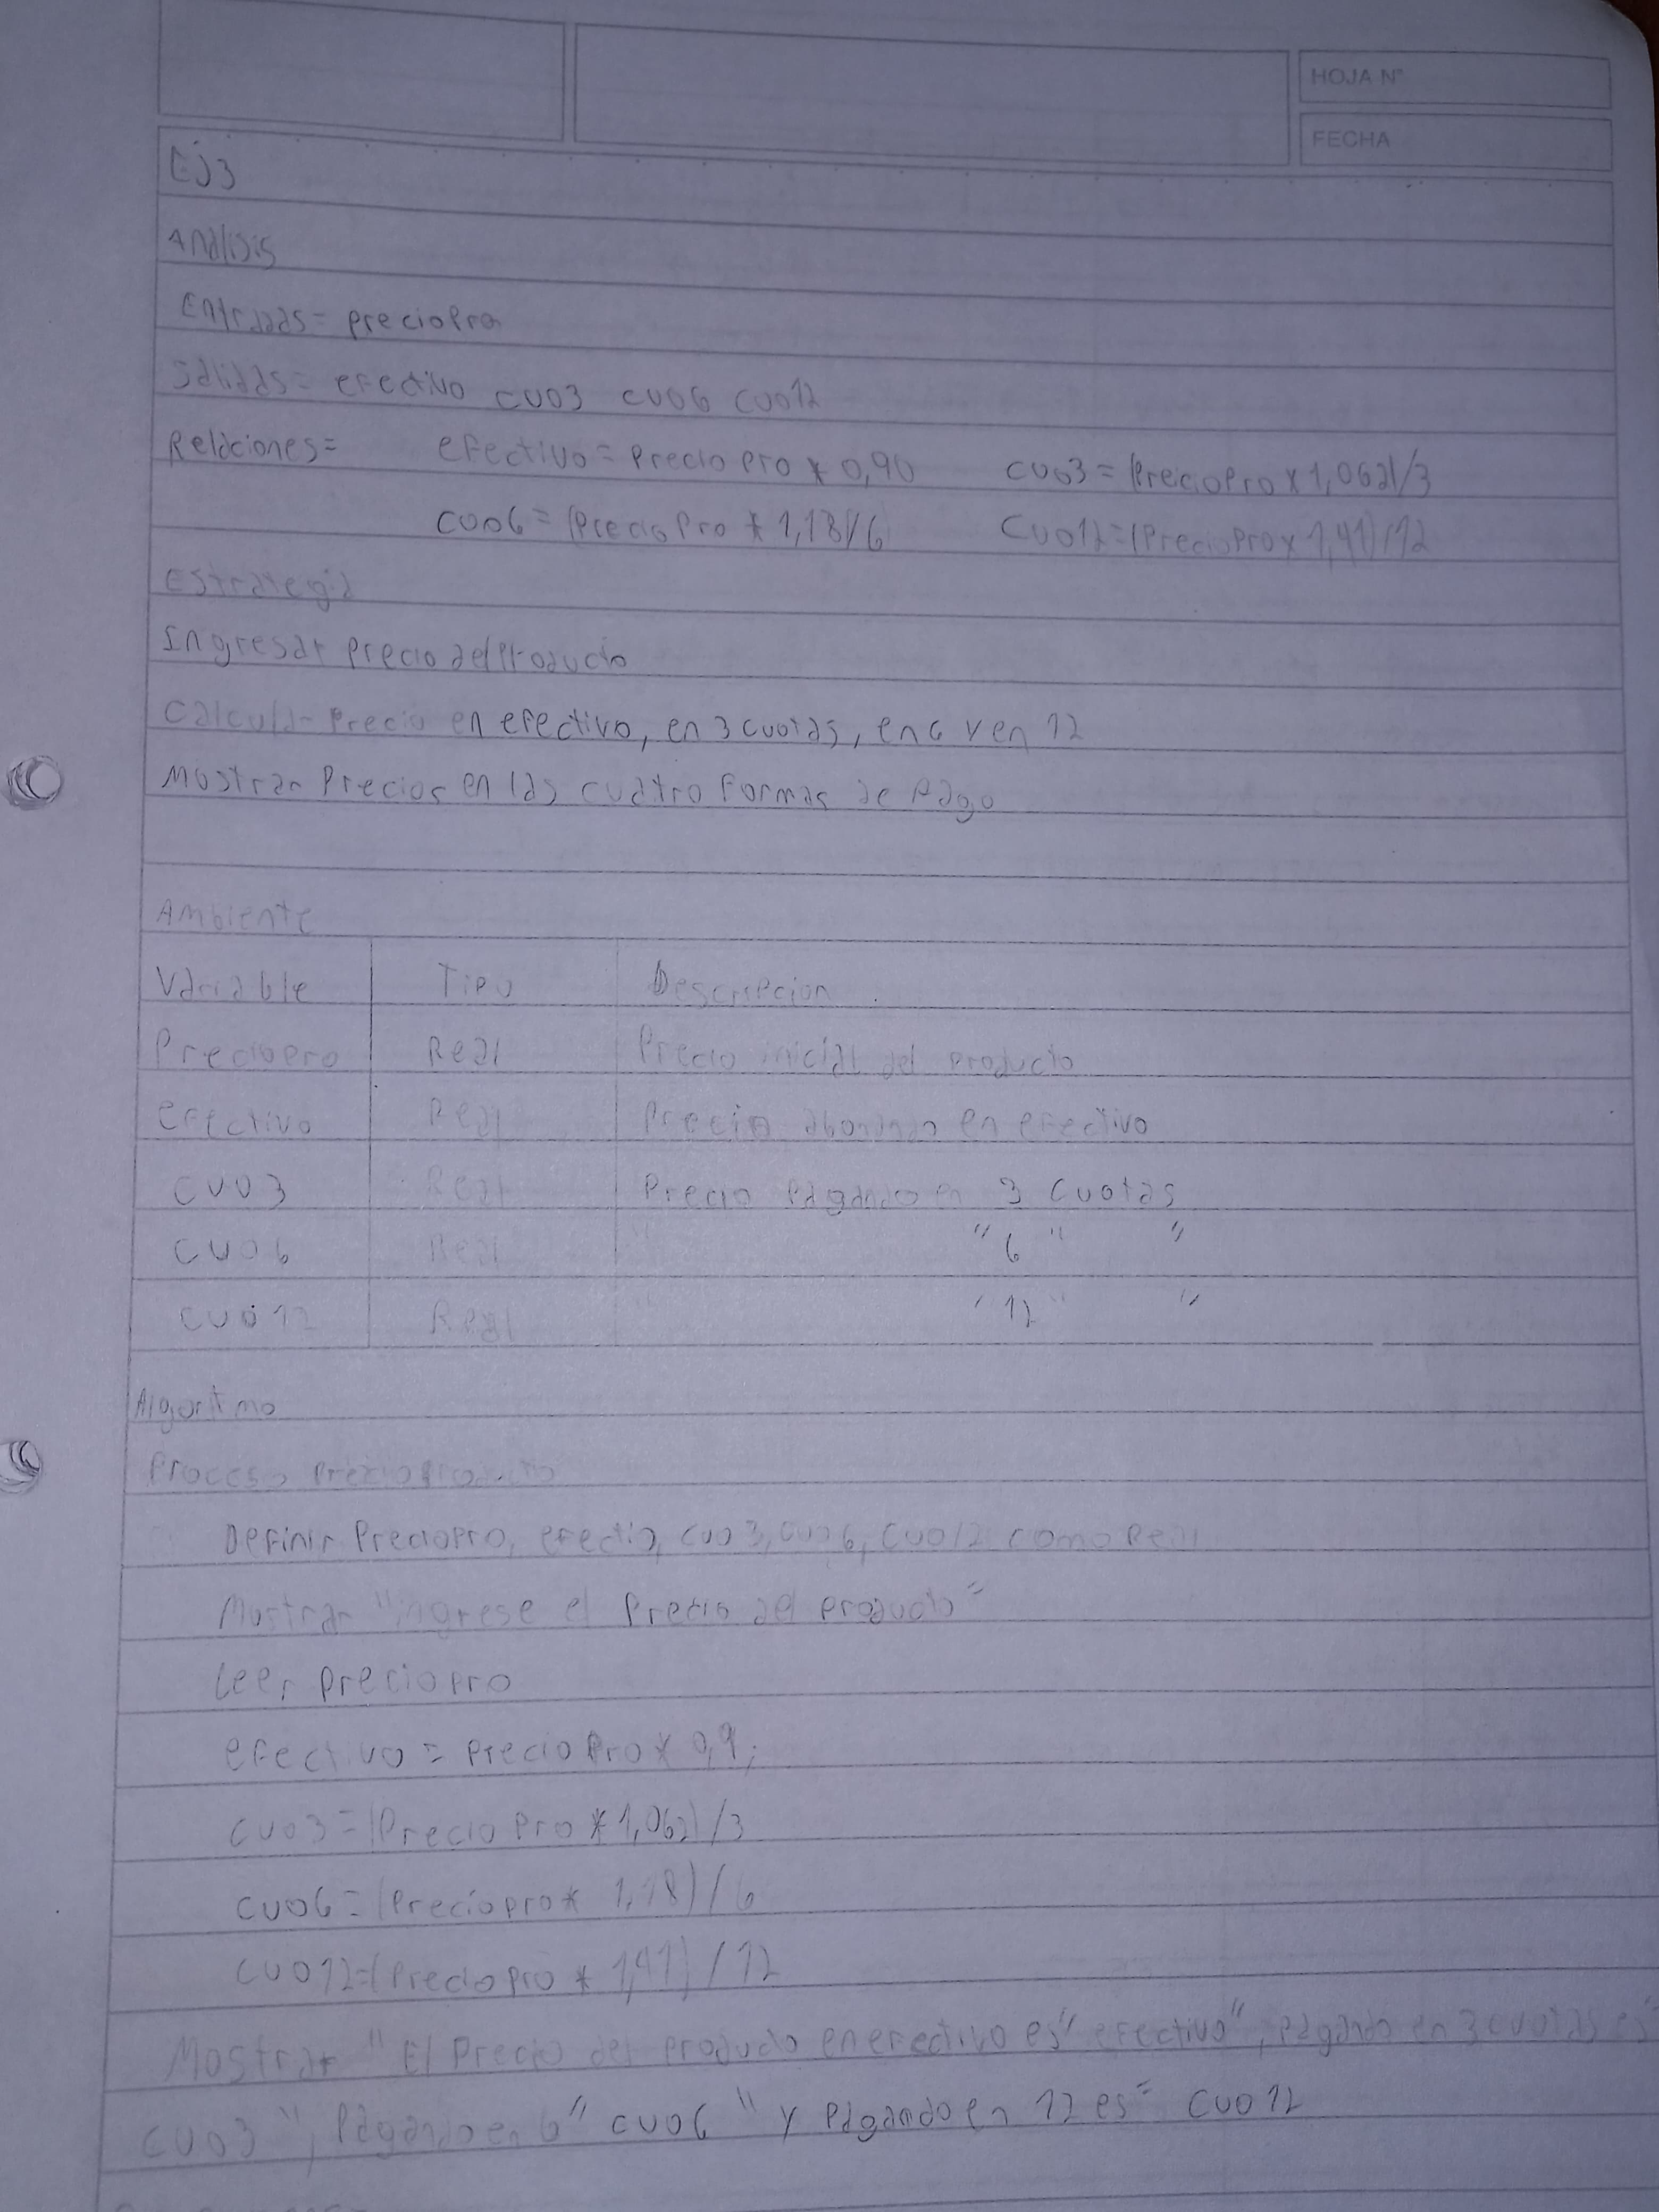 HOJA N°
FECHA
Ej3
Analisis
Entradas= precioPro
Salidas= efectivo cuo3 cuo6 cuo12
Relaciones= efectivo= Precio Pro * 0,90 cuo3= (PrecioPro * 1,062)/3
cuo6= (Precio Pro * 1,18)/6 Cuo12=(PrecioPro * 1,41)/12
Estrategia
Ingresar precio del Producto
Calcular Precio en efectivo, en 3 cuotas, en 6 y en 12
Mostrar Precios en las cuatro formas de Pago
Ambiente
Variable Tipo Descripcion
Preciopro Real Precio inicial del producto
efectivo Real Precio abonando en efectivo
cuo3 Real Precio Pagando en 3 cuotas
cuo6 Real " " 6 " "
cuo12 Real " " 12 " "
Algoritmo
Proceso
Definir PrecioPro, efectio, cuo3, cuo6, cuo12 como Real
Mostrar "ingrese el Precio del producto"
Leer preciopro
efectivo = precioPro * 0,9;
cuo3=(Precio Pro * 1,062)/3
cuo6=(Preciopro* 1,18)/6
cuo12=(Preciopro * 1,41)/12
Mostrar "El Precio del producto en efectivo es" efectivo", pagando en 3 cuotas es"
cuo3", Pagando en 6" cuo6 " y Pagando en 12 es" cuo12